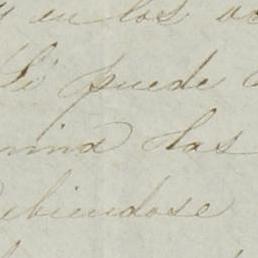 y en los
Si puede
mina las
biendose